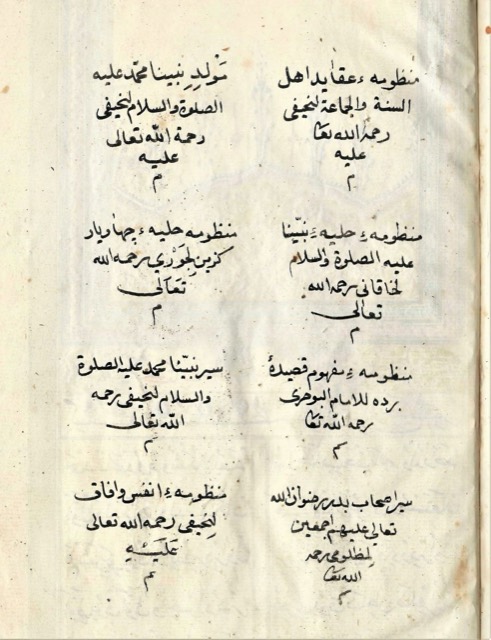 منظومهٔ عقايد اهل
السنة والجماعة لنحيفى
رحمة الله تعا
عليه
م
مَوْلِدِ نبينا محمد عليه
الصلوة والسلام لنحيفى
رحمة الله تعالى
عليه
م
منظومهٔ حليهٔ نبيّنا
عليه الصلوة والسلام
لخاقانى رحمه الله
تعالى
م
منظومه حليهٔ چهاريار
كزين لجَوْرى رحمه الله
تعَالى
م
منظومهٔ مفهوم قصيدهٔ
برده للامام البوصرى
رحمه الله تعا
م
سير نبيّنا محمد عليه الصلوة
والسلام لنحيفى رحمه
الله تعالى
م
سير اصحاب بدر رضوان الله
تعالى عليهم اجمعين
لمظلومى رحمه
الله تعا
م
منظومهٔ انفس وافاق
لنحيفى رحمه الله تعالى
عَلَيْهِ
م